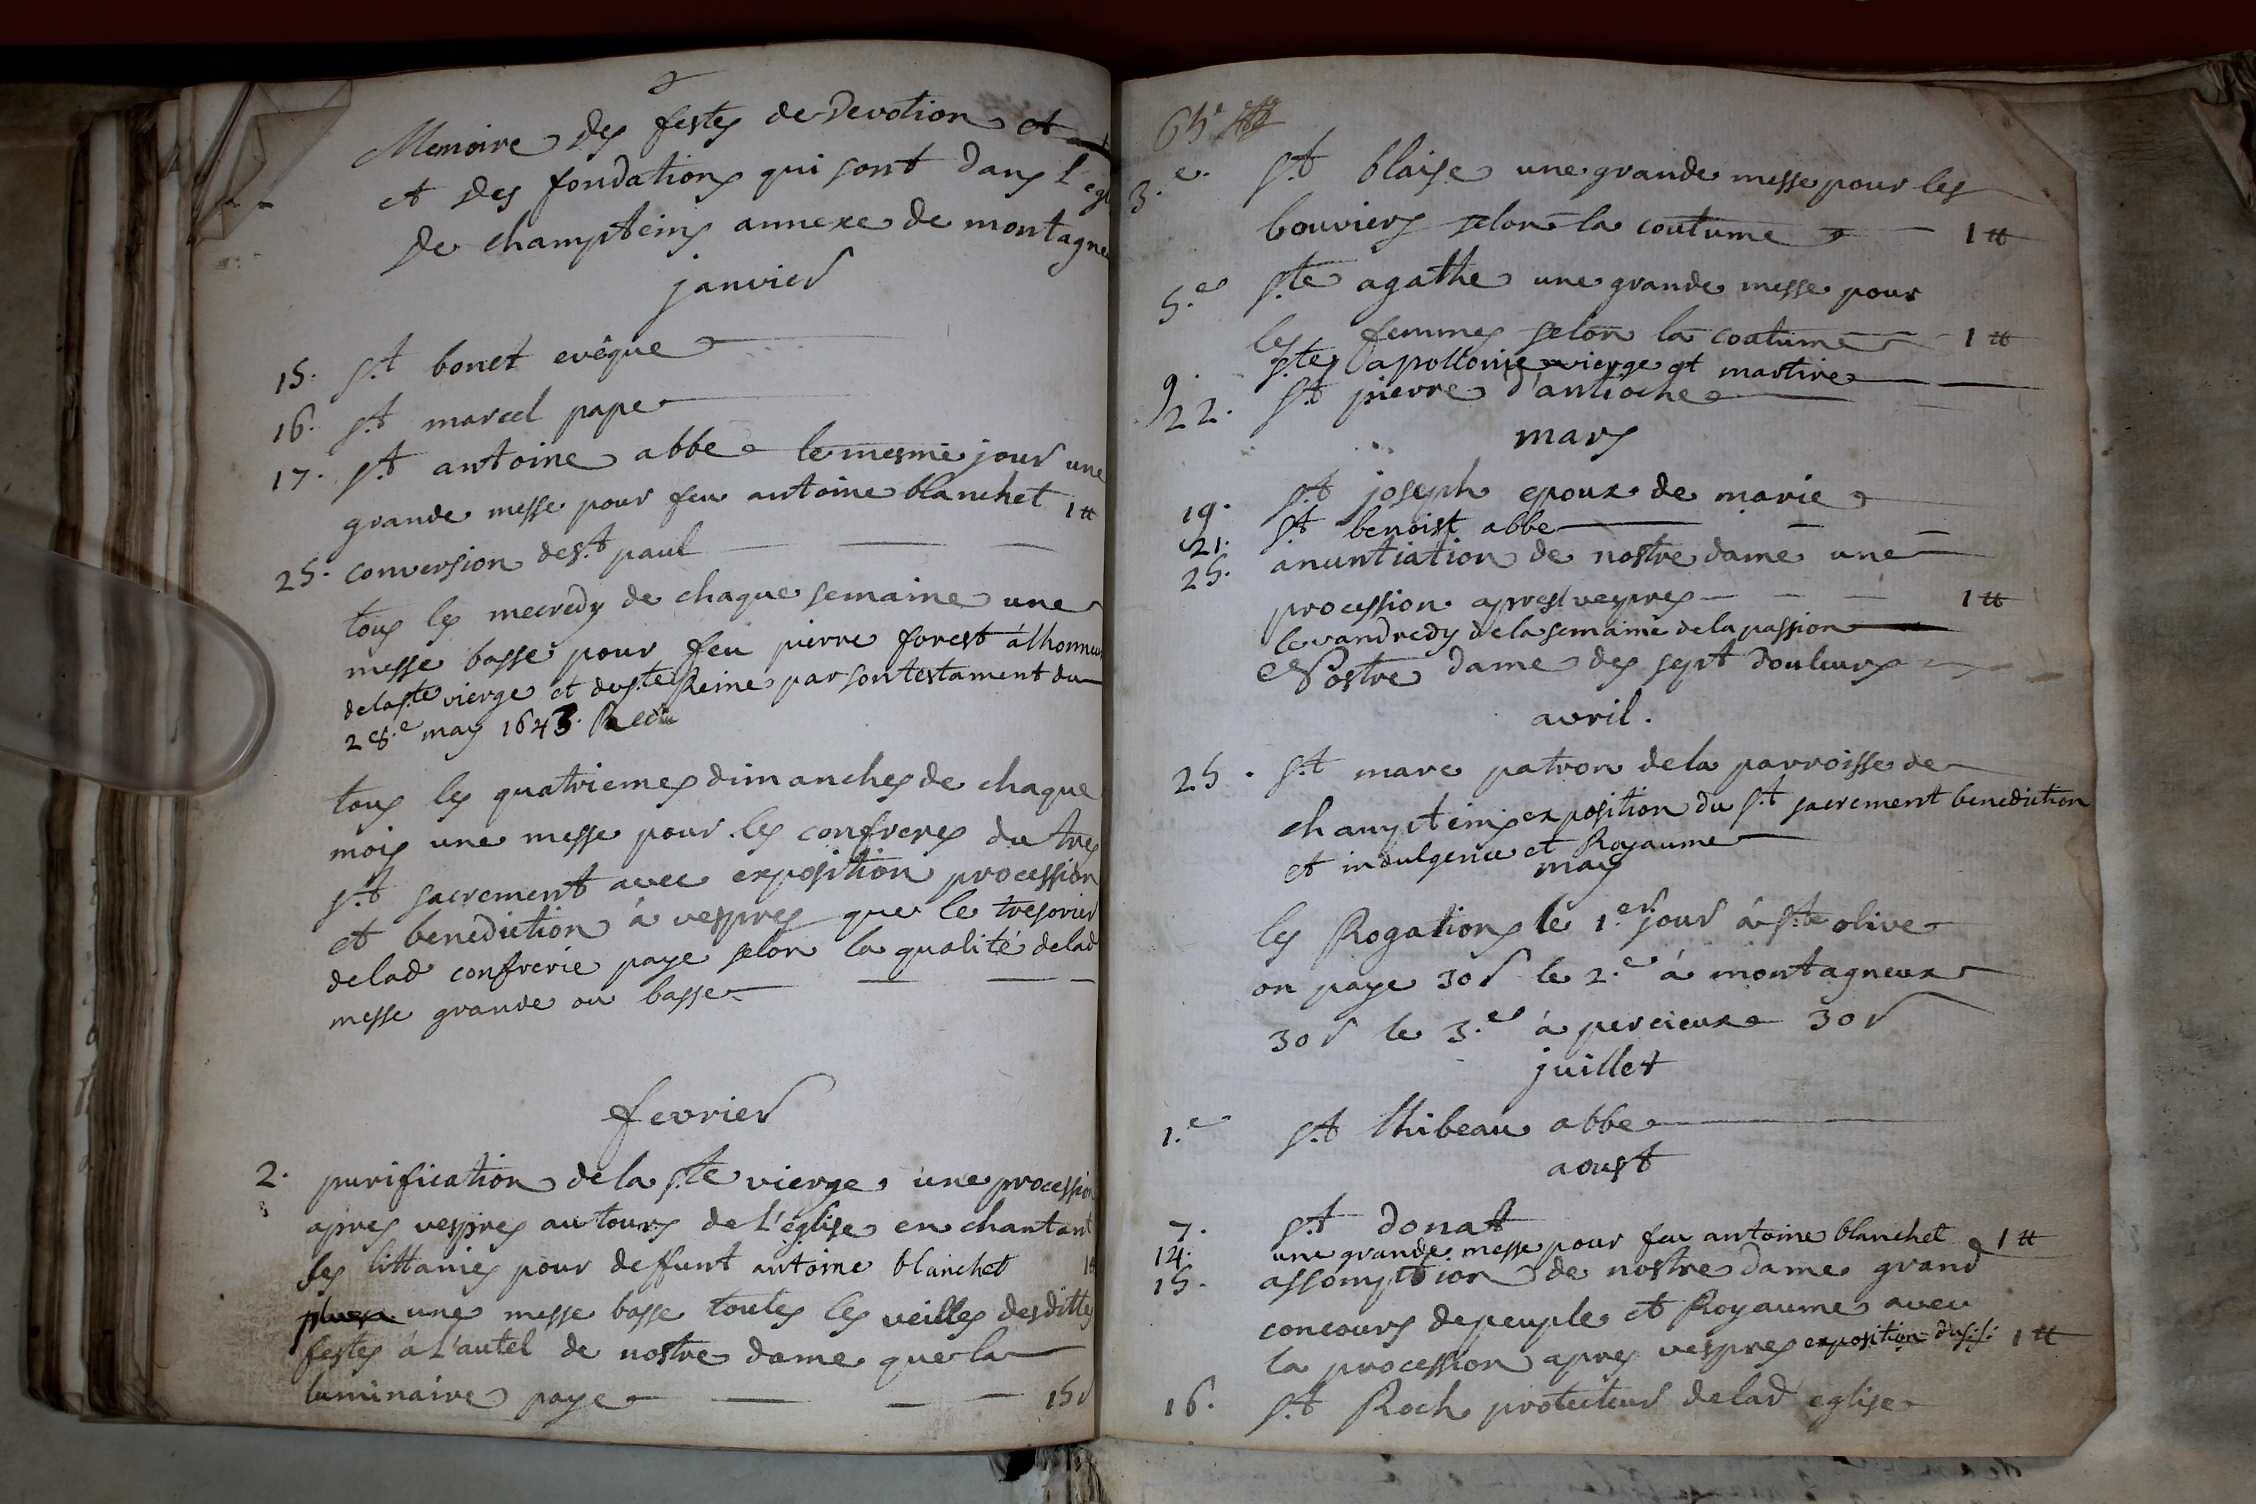 Memoire des festes de Devotion et
et des fondations qui sont dans l'egl
de champteins annexe de montagneu
janvier
15. S.t bonet evêque
16. S.t marcel pape
17. S.t antoine abbe le mesme jour une
grande messe pour feu antoine blanchet 1 ₶
25. conversion de s.t paul
tous les mecredy de chaque semaine une
messe basse pour feu pierre forest à lhonneur
de la s.te vierge et de s.te Reine par son testament du
28.e may 1643.
tous les quatriemes dimanches de chaque
mois une messe pour les confreres du tres
s.t sacrement avec exposition procession
et benediction à vespres que le tresorier
de lad confrerie paye selon la qualité de lad
messe grande ou basse
fevrier
2. purification de la s.te vierge une procession
apres vespres au tours de l'église en chantant
les littanies pour deffunt antoine blanchet 1₶
une messe basse toutes les veilles desdittes
festes à l'autel de nostre dame que la
luminaire paye 15 s
65e
3.e S.t blaise une grande messe pour les
bouviers selon la coutume 1 ₶
5.e S.te agathe une grande messe pour
les femmes selon la coutume 1 ₶
9. S.te apollonie vierge et martire
22. S.t pierre d'antioche
mars
19. S.t joseph epoux de marie
21. S.t benoist abbe
25. anuntiation de nostre dame une
procession apres vespres 1 ₶
le vandredy de la semaine de la passion
Nostre dame des sept douleurs
avril.
25. S.t marc patron de la parroisse de
champteins exposition du s.t sacrement benediction
et indulgence et Royaume
may
les Rogations le 1.er jour à s.te olive
on paye 30 s le 2.e à montagneux
30 s le 3.e à percieux 30 s
juillet
1.e S.t thibeau abbe
aoust
7. S.t donat
14. une grande messe pour feu antoine blanchet 1 ₶
15. assomption de nostre dame grand
concours de peuple et Royaume avec
la procession apres vespres exposition du s: s: 1 ₶
16. S.t Roch protecteur de lad eglise